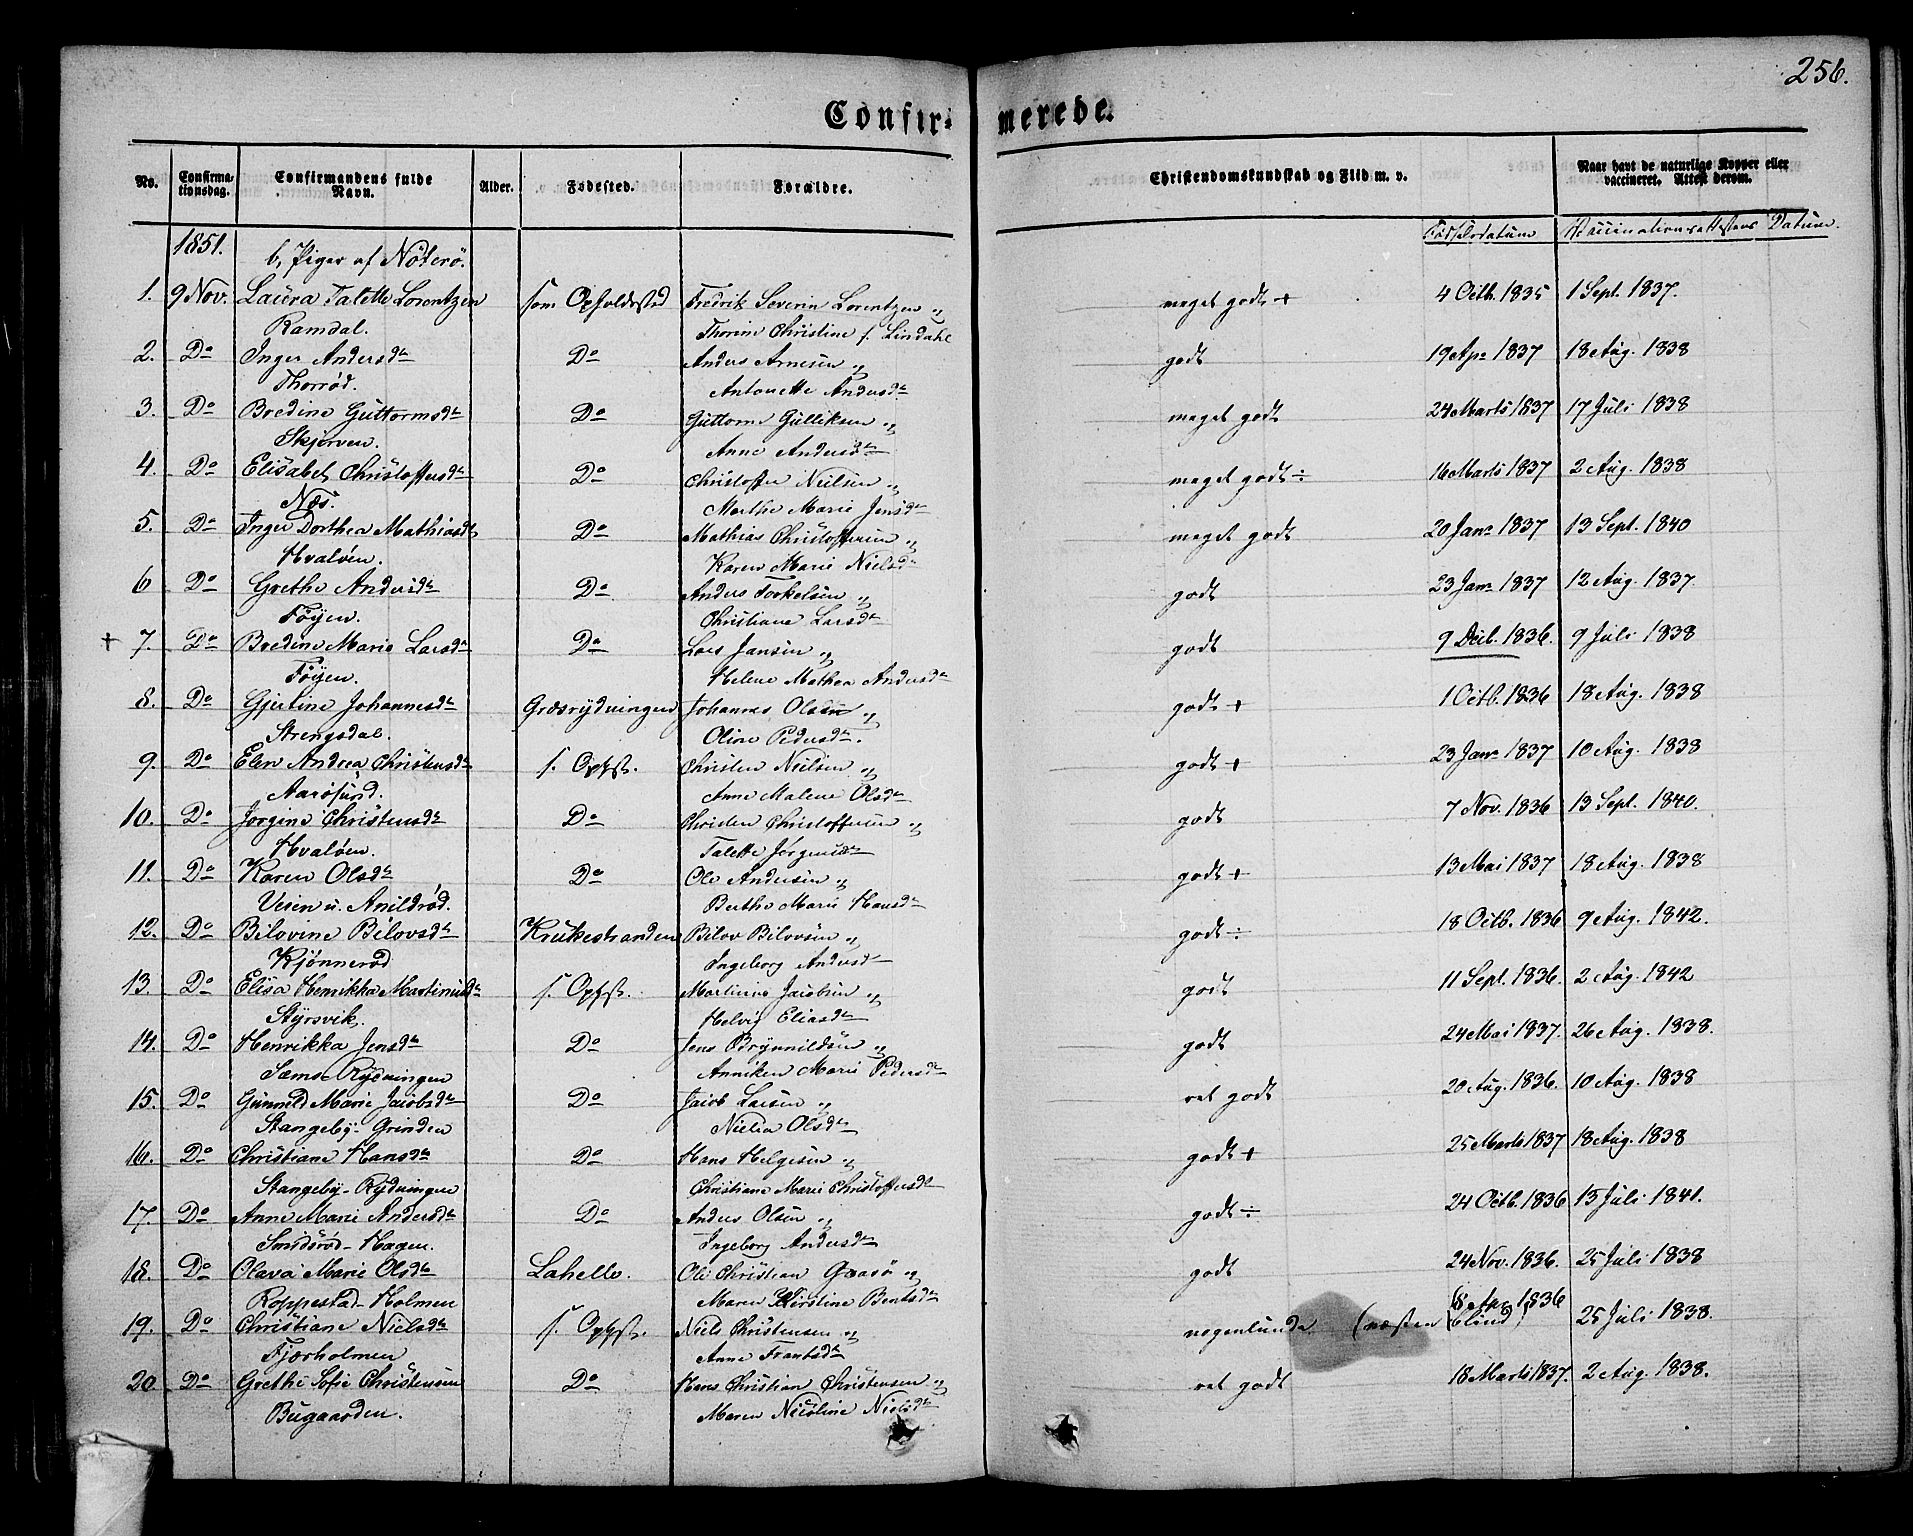 256.
Confir- merede.
No. Confirma-tionsdag. Confirmandens fulde Navn. Alder. Fødested. Forældre. Christendomskundskab og Flid m. v. Naar havt de naturlige Kopper eller vaccineret. Attest derom.
1851. b, Piger af Nöterö. Fødselsdatum Vaccinationsattestens Datum.
1. 9 Nov. Laura Talette Lorentzen som Opholdssted Fredrik Severin Lorentzen og meget godt + 4 Octb. 1835 1 Sept. 1837.
Ramdal. Thorine Christine f. Lindahl
2. Do Inger Andersdr Do Anders Arnesen og godt 19 Apr 1837 18 Aug. 1838
Thorrød. Antonette Andersdr
3. Do Bredine Guttormsdr Do Guttorm Gulliksen og meget godt 24 Marts 1837 17 Juli 1838
Skjerven. Anne Andersdr
4. Do Elisabet Christoffersdr Do Christoffer Nielsen og meget godt ÷ 16 Marts 1837 2 Aug. 1838
Næs. Marthe Marie Jensdr
5. Do Inger Dorthea Mathiasdr Do Mathias Christoffersen og meget godt 20 Janr 1837 13 Sept. 1840
Hvaløen. Karen Marie Nielsdr
6 Do Grethe Andersdr Do Anders Torkelsen og godt 23 Janr 1837 12 Aug. 1837.
Føyen. Christiane Larsdr
+ 7. Do Bredine Marie Larsdr Do Lars Jansen og godt 9 Dec. 1836. 9 Juli 1838
Føyen. Helene Mathea Andersdr
8. Do Gjertine Johannesdr Græsrydningen Johannes Olsen og godt + 1 Octb. 1836 18 Aug. 1838
Strengsdal. Oline Pedersdr.
9. Do Elen Andrea Christensdr s. Ophst. Christen Nielsen og godt + 23 Janr 1837 10 Aug. 1838
Aarøsund. Anne Malene Olsdr
10. Do Jørgine Christensdr Do Christen Christoffersen og godt 7 Nov. 1836 13 Sept. 1840.
Hvaløen. Talette Jørgensdr
11. Do Karen Olsdr Do Ole Andersen og godt + 13 Mai 1837 18 Aug. 1838
Veien u. Anildrød. Berthe Marie Hansdr
12. Do Bilovine Bilovsdr Krukestranden Bilov Bilovsen og godt ÷ 18 Octb. 1836 9 Aug. 1842.
Kjønnerød Ingeborg Andersdr
13. Do Elisa Henrikka Martinusdr s. Ophst. Martinus Jacobsen og godt 11 Sept. 1836. 2 Aug. 1842
Styrsvik. Helvig Eliasdr
14. Do Henrikka Jensdr Do Jens Brynnildsen og godt 24 Mai 1837. 26 Aug. 1838.
Sems-Rydningen Anniken Marie Pedersdr
15. Do Gunnild Marie Jacobsdr Do Jacob Larsen og ret godt 20 Aug. 1836. 10 Aug. 1838
Stangeby-Grinden Nielia Olsdr
16. Do Christiane Hansdr Do Hans Helgesen og godt + 25 Marts 1837 18 Aug. 1838
Stangeby-Rydningen Christiane Marie Christoffersdr
17. Do Anne Marie Andersdr Do Anders Olsen og godt ÷ 24 Octb. 1836 15 Juli 1841.
Smidsrød-Hagen. Ingeborg Andersdr
18. Do Olava Marie Olsdr Lahelle. Ole Christian Gaasø og godt 24 Nov. 1836. 25 Juli 1838
Roppestad-Holmen Maren Kirstine Bentsdr
19. Do Christiane Nielsdr s. Ophst. Niels Christensen og nogenlunde (næsten blind) 8 Apr 1836 25 Juli 1838.
Fjærholmen Anne Frantsdr
20 Do Grethe Sofie Christensen Do Hans Christian Christensen og ret godt 18 Marts 1837. 2 Aug. 1838.
Bugaarden. Maren Nicoline Nielsdr